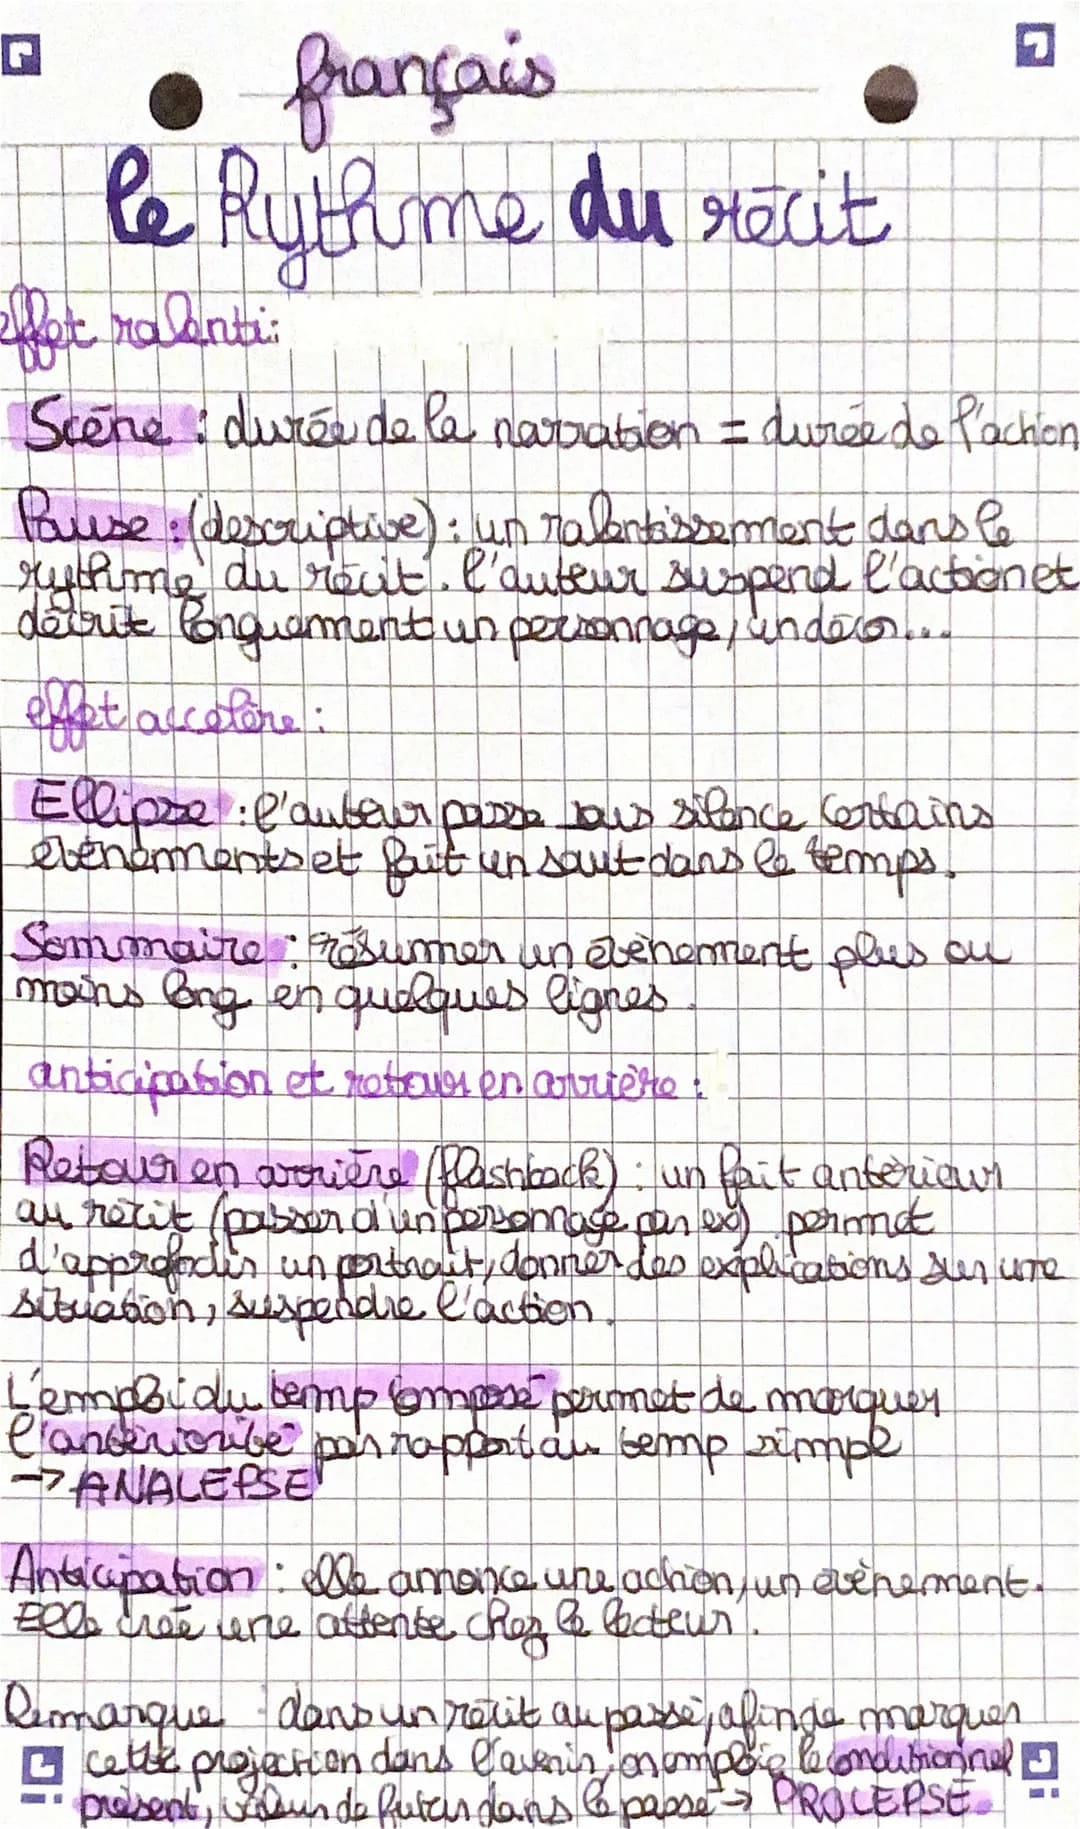 français
le Rythme du récit
effet ralenti:
Scène : durée de la narration = durée de l'action
Pause : (descriptive) : un ralentissement dans le
rythme du récit. l'auteur suspend l'action et
décrit longuement un personnage, un décor...
effet accelère :
Ellipse : l'auteur passe sous silence certains
évènements et fait un saut dans le temps.
Sommaire : résumer un évènement plus ou
moins long en quelques lignes.
anticipation et retour en arrière :
Retour en arrière (flashback) : un fait antérieur
au récit (passer d'un personnage par ex) permet
d'approfodir un portrait, donner des explications sur une
situation, suspendre l'action.
L'emploi du temp composé permet de marquer
l'antériorité par rapport au temp simple
→ ANALEPSE
Anticipation : elle annonce une action, un évènement.
Elle crée une attente chez le lecteur.
Remarque : dans un récit au passé, afin de marquer
cette projection dans l'avenir, on emploie le conditionnel
présent, valeur de futur dans le passé → PROLEPSE.